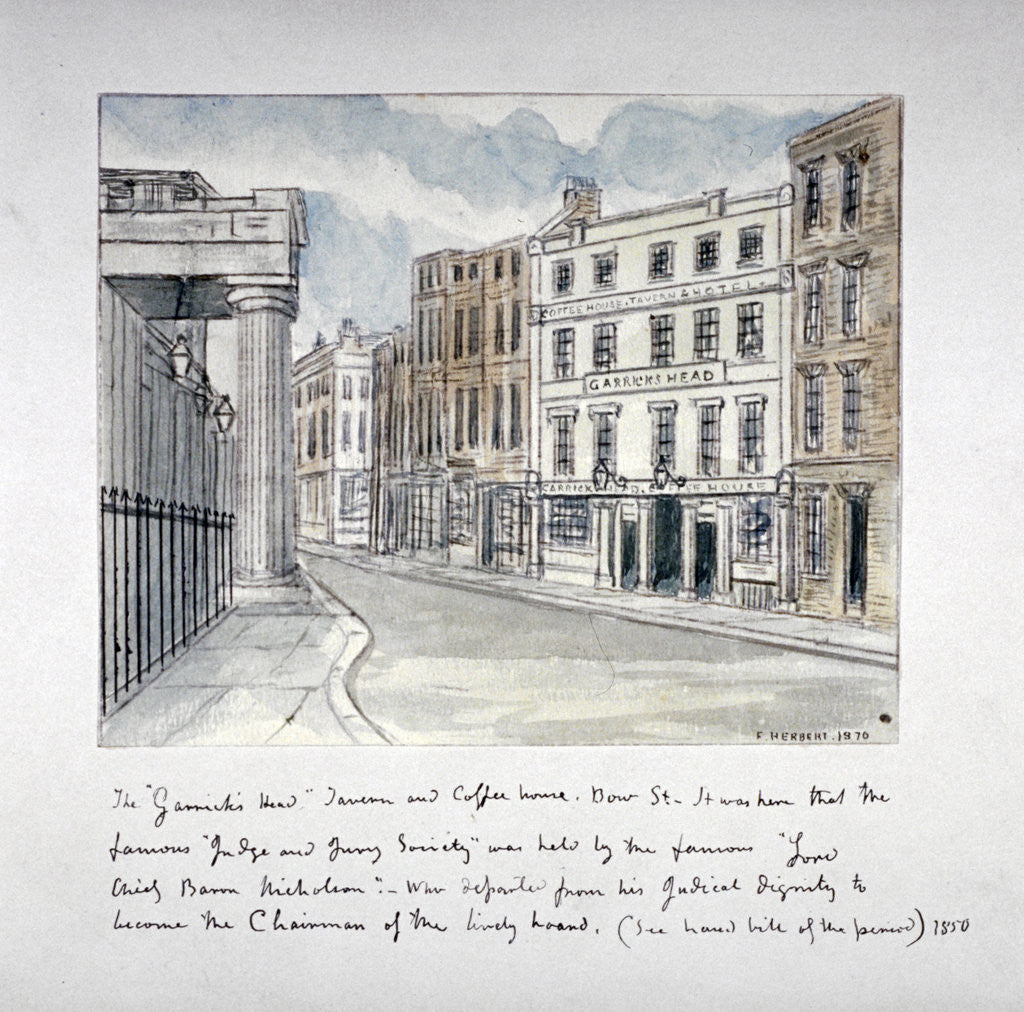 COFFEE HOUSE. TAVERN & HOTEL.
GARRICKS HEAD
GARRICKS HEAD. COFFEE HOUSE
F. HERBERT. 1870
The "Garrick's Head" Tavern and Coffee house. Bow St - It was here that the
famous "Judge and Jury Society" was held by the famous "Lord
Chief Baron Nicholson" - who departed from his Judical dignity to
become the Chairman of the lively board. (See hand bill of the period) 1850